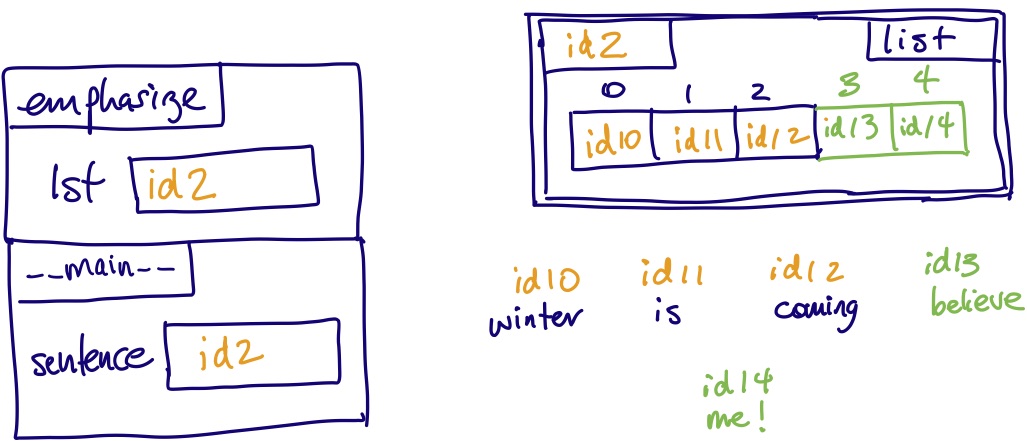 emphasize
lst id2
__main__
sentence id2
id2 list
0 1 2 3 4
id10 id11 id12 id13 id14
id10 id11 id12 id13
winter is coming believe
id14
me!